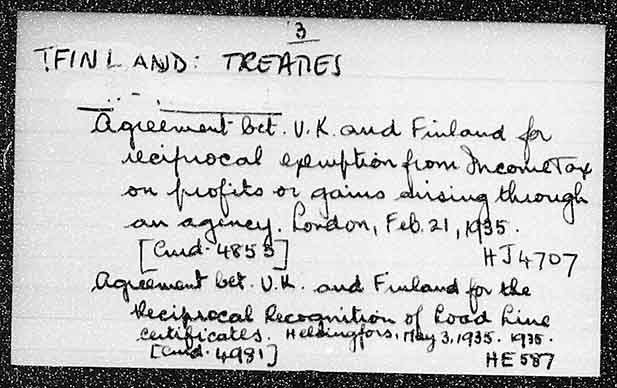 3
!FINLAND: TREATIES
Agreement bet. U.K. and Finland for
reciprocal exemption from Income Tax
on profits or gains arising through
an agency. London, Feb. 21, 1935.
[Cmd. 4855] HJ4707
Agreement bet. U.K. and Finland for the
Reciprocal Recognition of Load Line
certificates. Helsingfors, May 3, 1935. 1935.
[Cmd. 4981] HE587